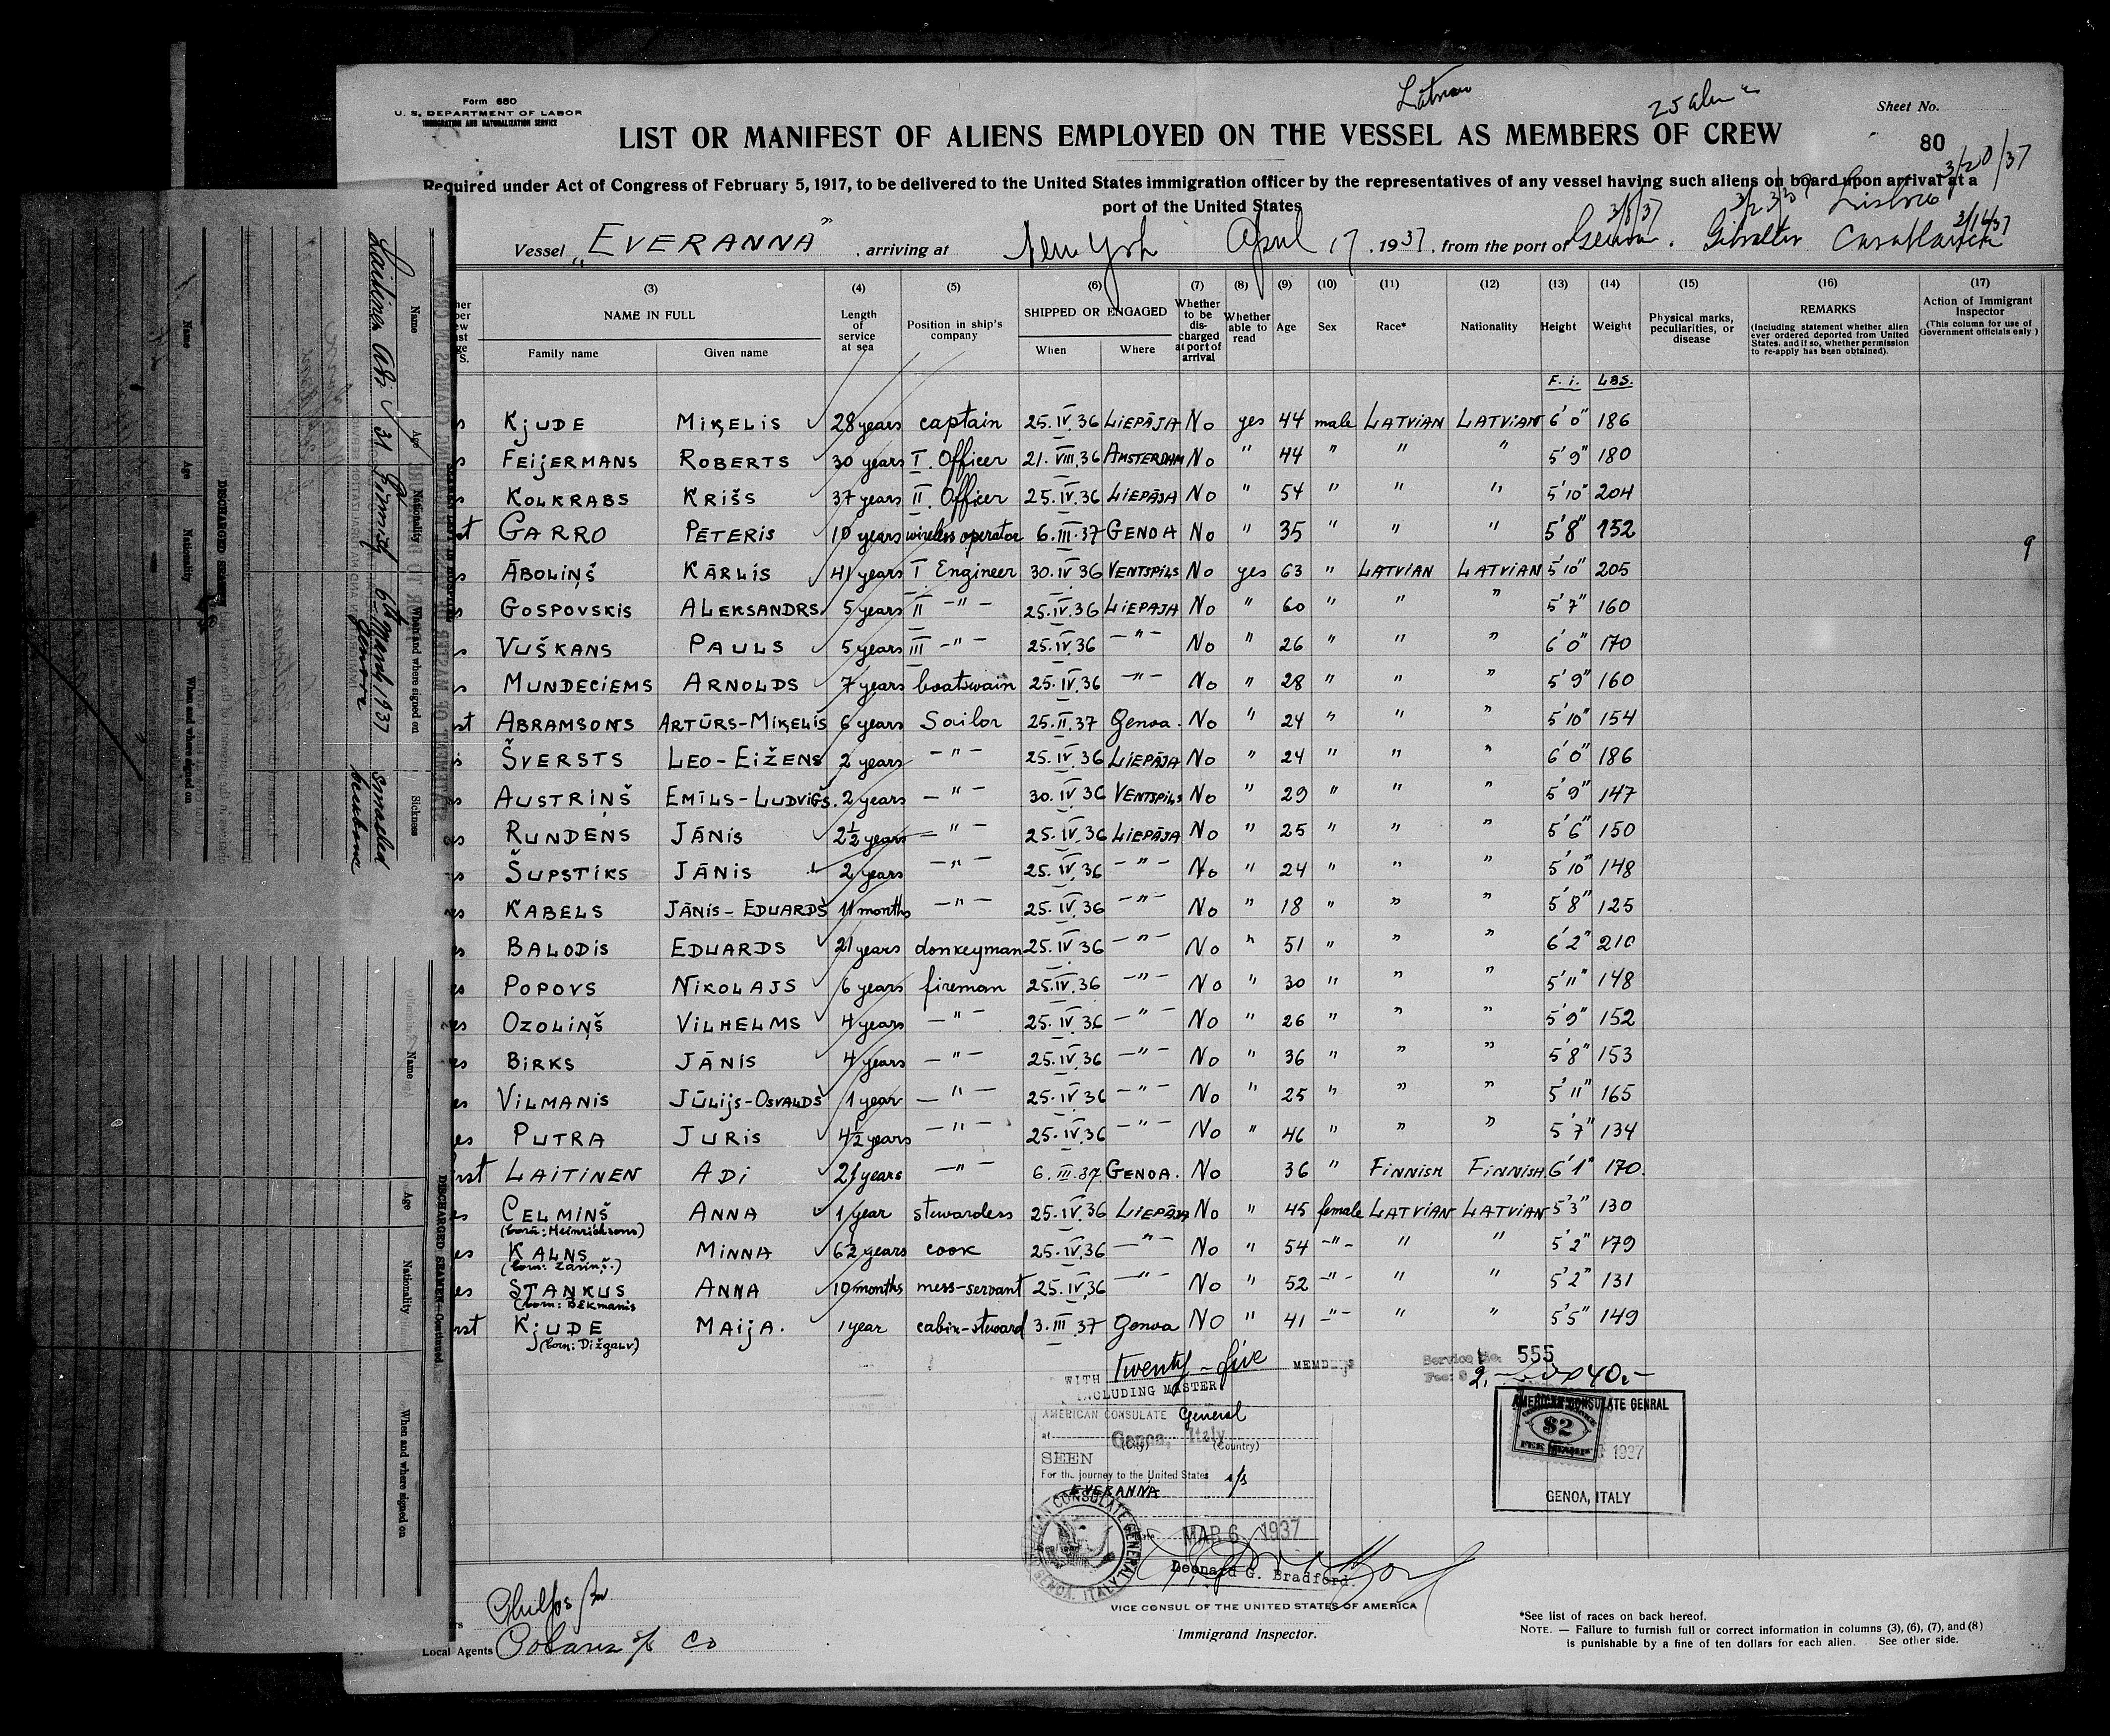 Form 680
U. S. DEPARTMENT OF LABOR
IMMIGRATION AND NATURALIZATION SERVICE
Latvian
25 alien
Sheet No.
80
LIST OR MANIFEST OF ALIENS EMPLOYED ON THE VESSEL AS MEMBERS OF CREW
Required under Act of Congress of February 5, 1917, to be delivered to the United States immigration officer by the representatives of any vessel having such aliens on board upon arrival at a
port of the United States
3/20/37
Lisbon
Vessel „EVERANNA” arriving at New York April 17, 1937, from the port of Genoa. 3/8/37 Gibraltar Casablanca 3/16/37
(3) (4) (5) (6) (7) (8) (9) (10) (11) (12) (13) (14) (15) (16) (17)
NAME IN FULL
Family name Given name
Length of service at sea
Position in ship's company
SHIPPED OR ENGAGED
When Where
Whether to be discharged at port of arrival
Whether able to read
Age Sex Race* Nationality Height Weight
Physical marks, peculiarities, or disease
REMARKS
(Including statement whether alien ever ordered deported from United States, and if so, whether permission to re-apply has been obtained).
Action of Immigrant Inspector
(This column for use of Government officials only)
F. i. LBS.
KjUDE MIĶELIS 28 years captain 25.IV.36 LIEPĀJA No yes 44 male LATVIAN LATVIAN 6'0" 186
FEIJERMANS ROBERTS 30 years I. Officer 21.VIII.36 AMSTERDAM No " 44 " " " 5'9" 180
KOLKRABS KRIŠS 37 years II. Officer 25.IV.36 LIEPĀJA No " 54 " " " 5'10" 204
st GARRO PETERIS 10 years wireless operator 6.III.37 GENOA No " 35 " " " 5'8" 152
ĀBOLIŅŠ KĀRLIS 41 years I Engineer 30.IV 36 VENTSPILS No yes 63 " LATVIAN LATVIAN 5'10" 205
9
GOSPOVSKIS ALEKSANDRS 5 years II -"- 25.IV.36 LIEPAJA No " 60 " " " 5'7" 160
VUŠKANS PAULS 5 years III -"- 25.IV.36 -"- No " 26 " " " 6'0" 170
MUNDECIEMS ARNOLDS 7 years boatswain 25.IV.36 -"- No " 28 " " " 5'9" 160
st ABRAMSONS ARTŪRS-MIĶELIS 6 years Sailor 25.II.37 Genoa. No " 24 " " " 5'10" 154
ŠVERSTS LEO-EIŽENS 2 years -"- 25.IV.36 LIEPĀJA No " 24 " " " 6'0" 186
AUSTRIŅŠ EMĪLS-LUDVIGS. 2 years -"- 30.IV 36 VENTSPILS No " 29 " " " 5'9" 147
RUNDENS JĀNIS 2½ years -"- 25.IV.36 LIEPĀJA No " 25 " " " 5'6" 150
ŠUPSTIKS JĀNIS 2 years -"- 25.IV.36 -"- No " 24 " " " 5'10" 148
KABELS JĀNIS-EDUARDS 11 months -"- 25.IV.36 -"- No " 18 " " " 5'8" 125
BALODIS EDUARDS 21 years donkeyman 25.IV.36 -"- No " 51 " " " 6'2" 210
POPOVS NIKOLAJS 6 years fireman 25.IV.36 -"- No " 30 " " " 5'11" 148
OZOLIŅŠ VILHELMS 4 years -"- 25.IV.36 -"- No " 26 " " " 5'9" 152
BIRKS JĀNIS 4 years -"- 25.IV.36 -"- No " 36 " " " 5'8" 153
VILMANIS JŪLIJS-OSVALDS 1 year -"- 25.IV 36 -"- No " 25 " " " 5'11" 165
PUTRA JURIS 4½ years -"- 25.IV.36 -"- No " 46 " " " 5'7" 134
rst LAITINEN ADI 21 years -"- 6.III.37. GENOA. No 36 " FINNISH FINNISH 6'1" 170.
CELMIŅŠ ANNA 1 year stewardess 25.IV.36 LIEPĀJA No " 45 female LATVIAN LATVIAN 5'3" 130
(born: Heinrichsons)
KALNS MINNA 6½ years cook 25.IV.36 -"- No " 54 -"- " " 5'2" 179
(born: Zariņš.)
STANKUS ANNA 10 months mess-servant 25.IV.36 -"- No " 52 -"- " " 5'2" 131
(born: BĒKmanis
rst KjUDE MAIJA. 1 year cabin-steward 3.III.37 Genoa No " 41 -"- " " 5'5" 149
(born: Dižgalv)
WITH twenty-five MEMBERS
INCLUDING MASTER
Service No. 555
Fee: $ 2,- 40.-
AMERICAN CONSULATE General
at Genoa, Italy
(City) (Country)
SEEN
For the journey to the United States s/s
EVERANNA
Date MAR 6 1937
AMERICAN CONSULATE GENERAL
GENOA, ITALY
Leonard G. Bradford.
VICE CONSUL OF THE UNITED STATES OF AMERICA
Immigrant Inspector.
AMERICAN CONSULATE GENRAL
$2
FEE STAMP
1937
GENOA, ITALY
Phelps
Local Agents
Co
*See list of races on back hereof.
NOTE. — Failure to furnish full or correct information in columns (3), (6), (7), and (8)
is punishable by a fine of ten dollars for each alien. See other side.
Name Age Nationality When and where signed on Sickness
Laitinen Adi 31 Finnish 6th March 1937 Genova
DISCHARGED SEAMEN
Name Age Nationality When and where signed on
DISCHARGED SEAMEN—Continued.
Name Age Nationality When and where signed on